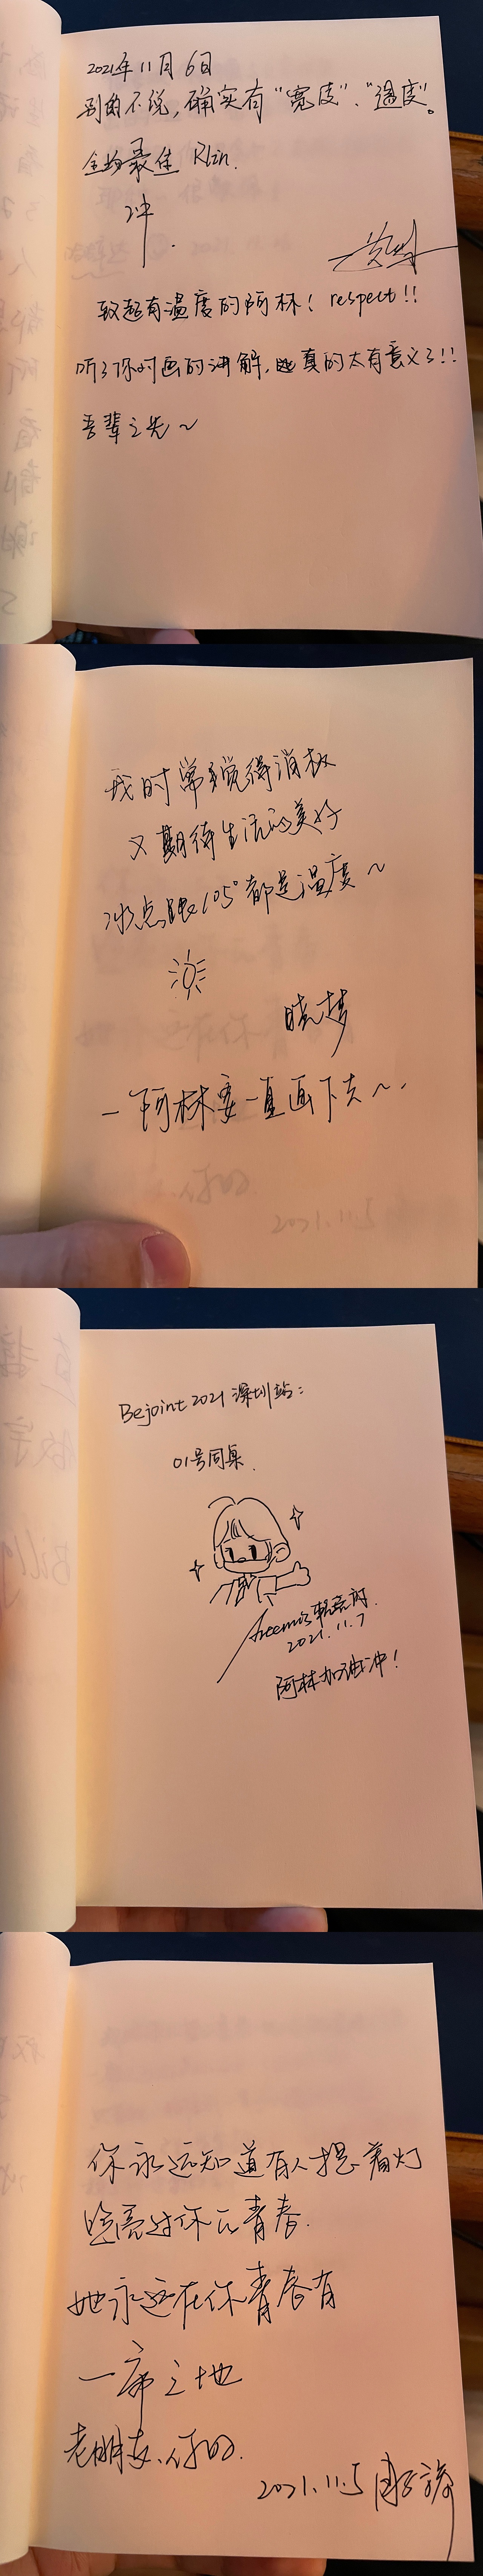 2021年11月6日
别的不说，确实有“宽度”、“温度”。
全场最佳 Rlin.
冲.
致超有温度的阿林！respect！！
听了你对画的讲解，真的太有意义了！！
吾辈之先～
我时常觉得消极
又期待生活的美好
冰点跟105°都是温度～
晓梦
一阿林要一直画下去～.
Bejoint 2021 深圳站：
01号同桌.
Artemis
2021.11.7
阿林加油冲！
你永远知道有人提着灯
照亮过你的青春.
她永远在你青春有
一席之地
老朋友、你的.
2021.11.5